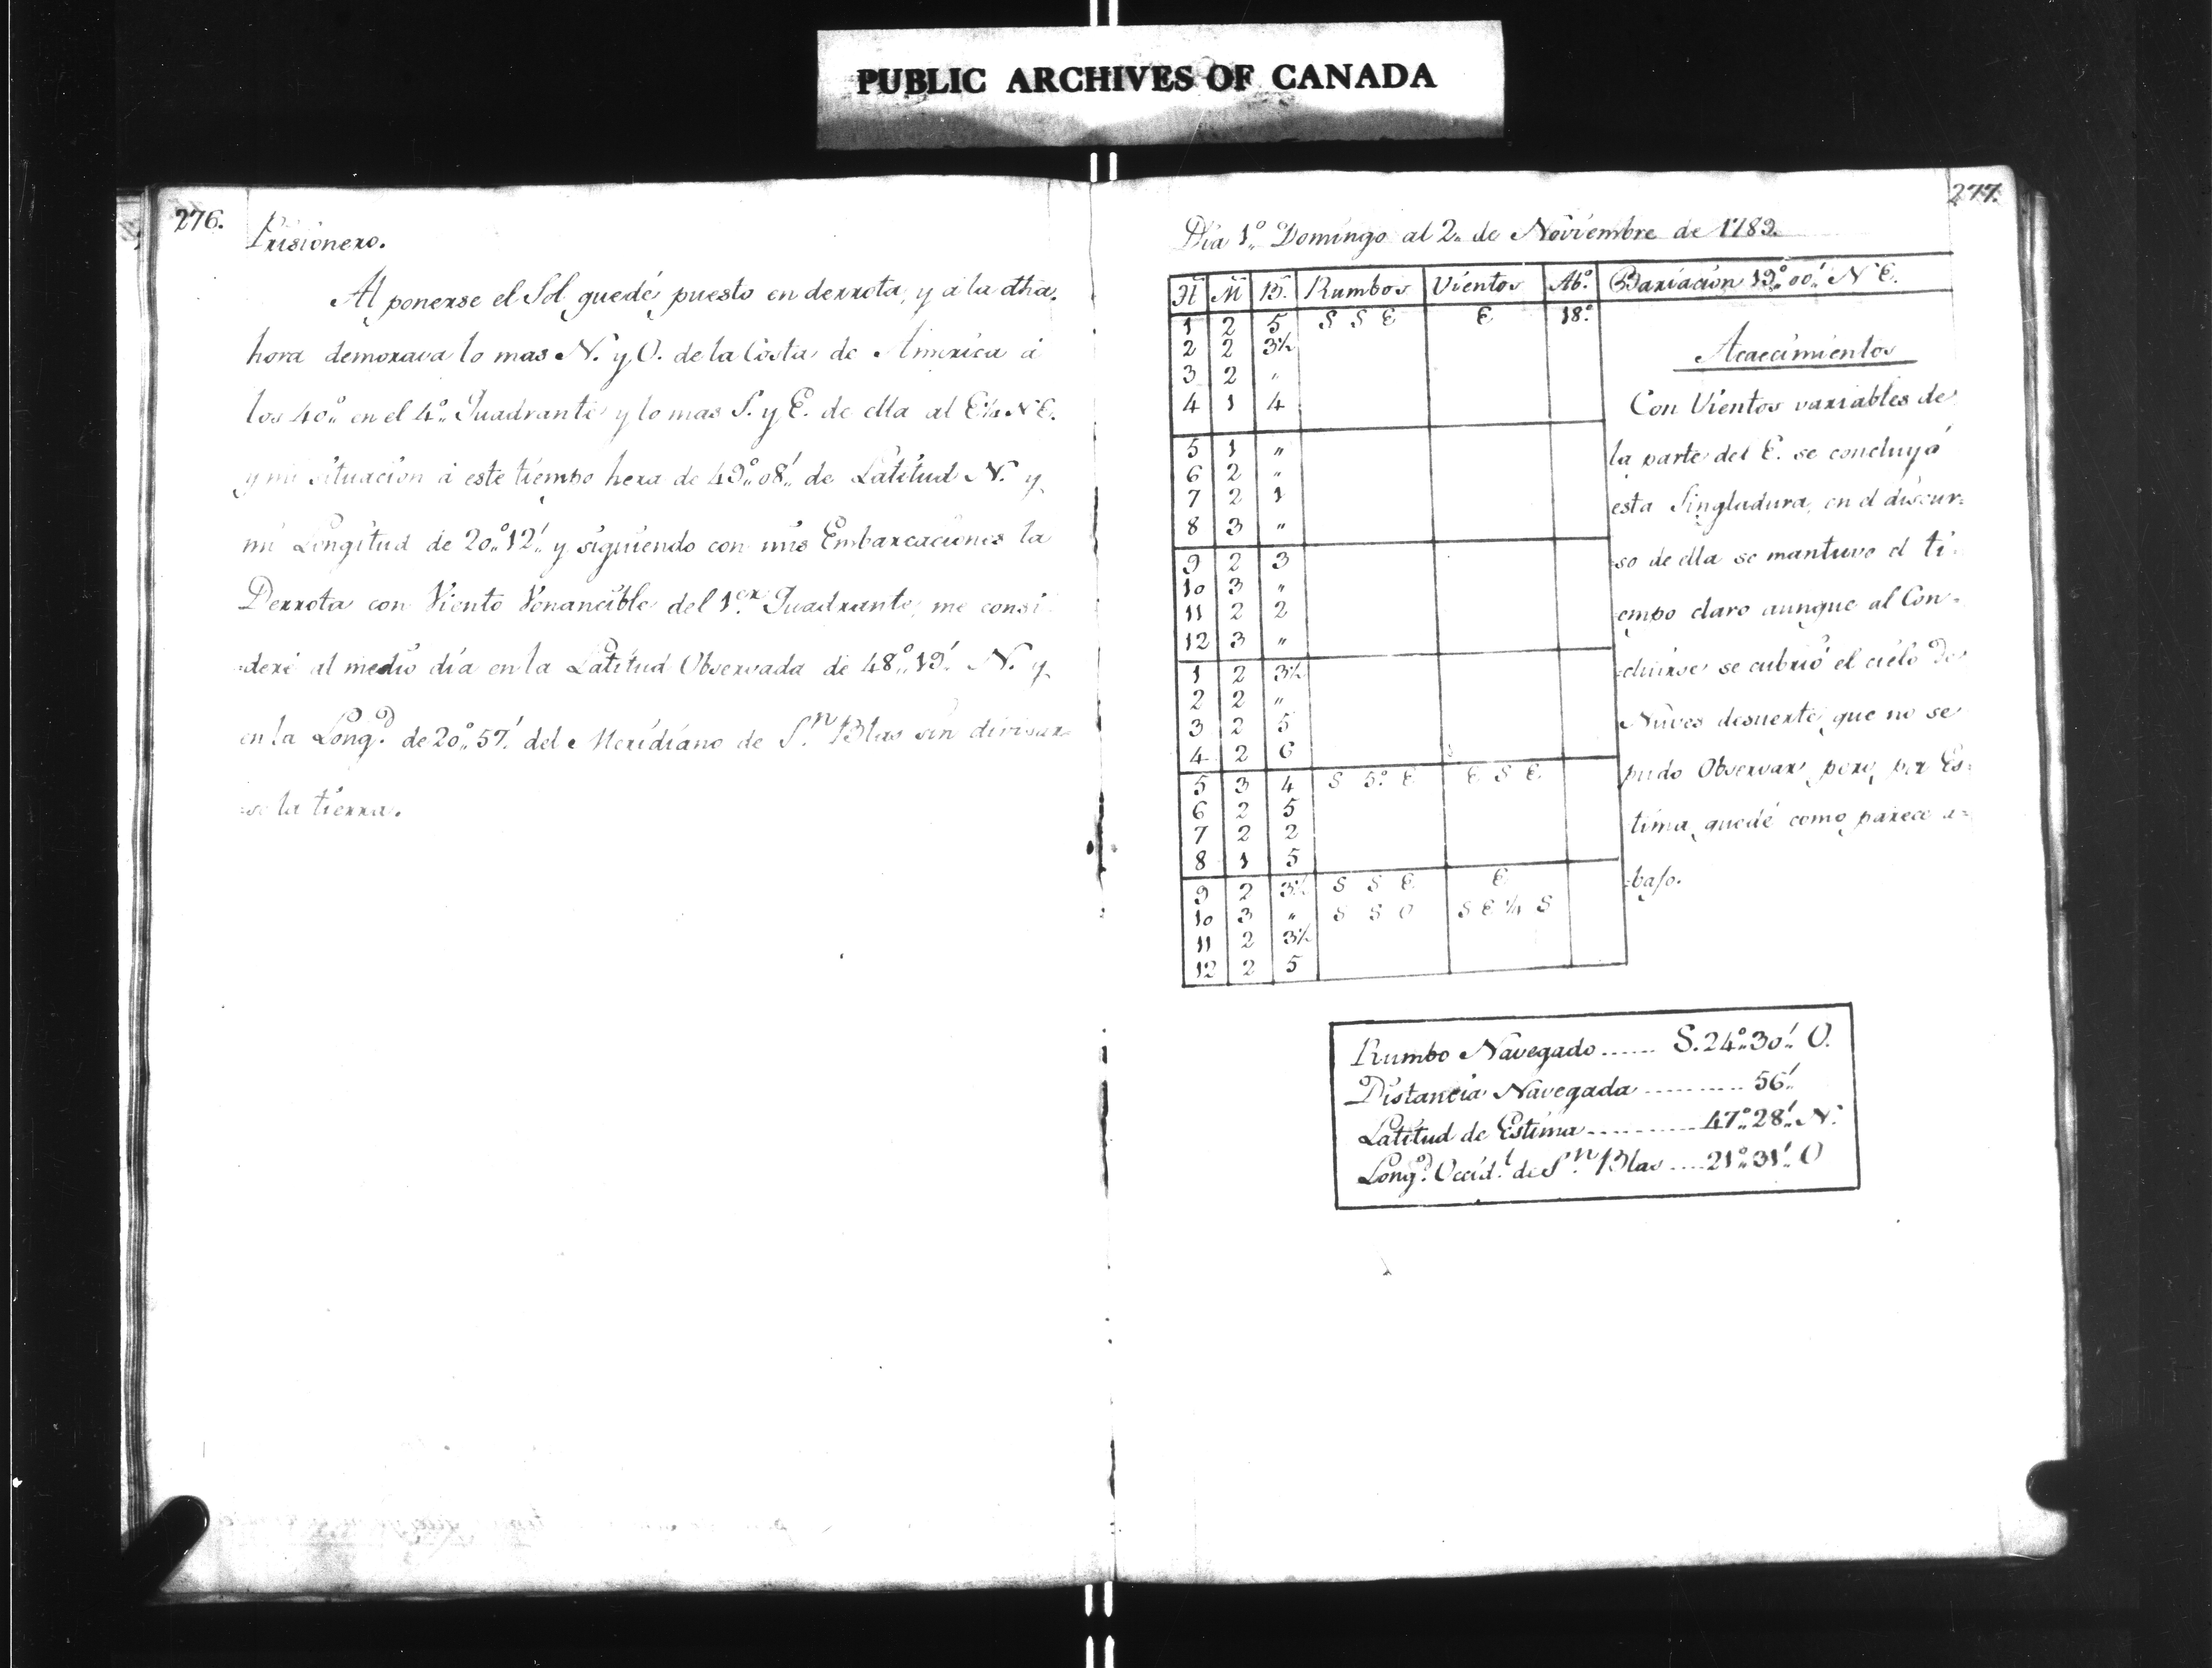 PUBLIC ARCHIVES OF CANADA
276.
Prisionero.
Al ponerse el Sol quedé puesto en derrota, y á la dha.
hora demorava lo mas N. y O. de la Costa de America á
los 40.° en el 4.° Quadrante y lo mas S. y E. de ella al E ¼ N E.
y mi situacion á este tiempo hera de 49.° 08' de Latitud N. y
mi Longitud de 20.° 12' y siguiendo con mis Embarcaciones la
Derrota con Viento Vonancible del 1.er Quadrante, me consi
=deré al medio dia en la Latitud Observada de 48.° 19' N. y
en la Long.d de 20.° 57' del Meridiano de S.n Blas sin divisar=
=se la tierra.
277.
Dia 1.° Domingo al 2. de Noviembre de 1789.
H M B. Rumbos Vientos Ab.° Bariacion 19.° 00' N E.
1 2 5 S S E E 18.°
2 2 3½
3 2 "
4 1 4
5 1 "
6 2 "
7 2 1
8 3 "
9 2 3
10 3 "
11 2 2
12 3 "
1 2 3½
2 2 "
3 2 5
4 2 6
5 3 4 S 5.° E E S E
6 2 5
7 2 2
8 1 5
9 2 3½ S S E E
10 3 " S S O S E ¼ S
11 2 3½
12 2 5
Acaecimientos
Con Vientos variables de
la parte del E. se concluyó
esta Singladura, en el discur=
=so de ella se mantuvo el ti=
empo claro aunque al Con=
=cluirse se cubrió el cielo De
Nuves desuerte, que no se
pudo Observar, pero, por Es=
tima, quedé como parece a=
=bajo.
Rumbo Navegado ...... S. 24.° 30' O.
Distancia Navegada .......... 56'
Latitud de Estima .......... 47.° 28' N.
Long.d Occid.l de S.n Blas .... 21.° 31' O